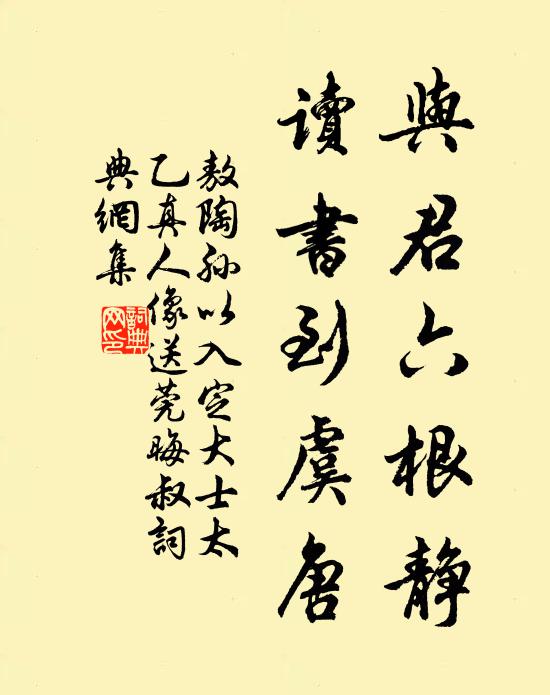 與君六根靜
讀書到虞唐
敖陶孫以入定大士太
乙真人像送莞晦叔詞
典網集
詞典網印